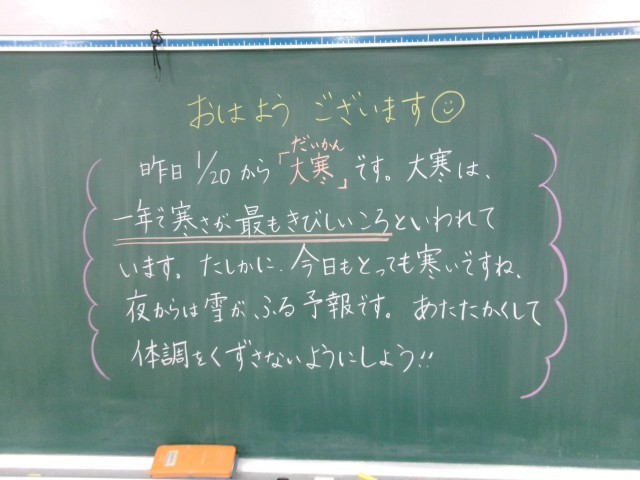 おはよう ございます☺
昨日 1/20 から「大寒」です。大寒は、
だいかん
一年で寒さが 最もきびしいころといわれて
います。たしかに、今日もとっても寒いですね、
夜からは雪が、ふる予報です。 あたたかくして
体調をくずさないようにしよう!!